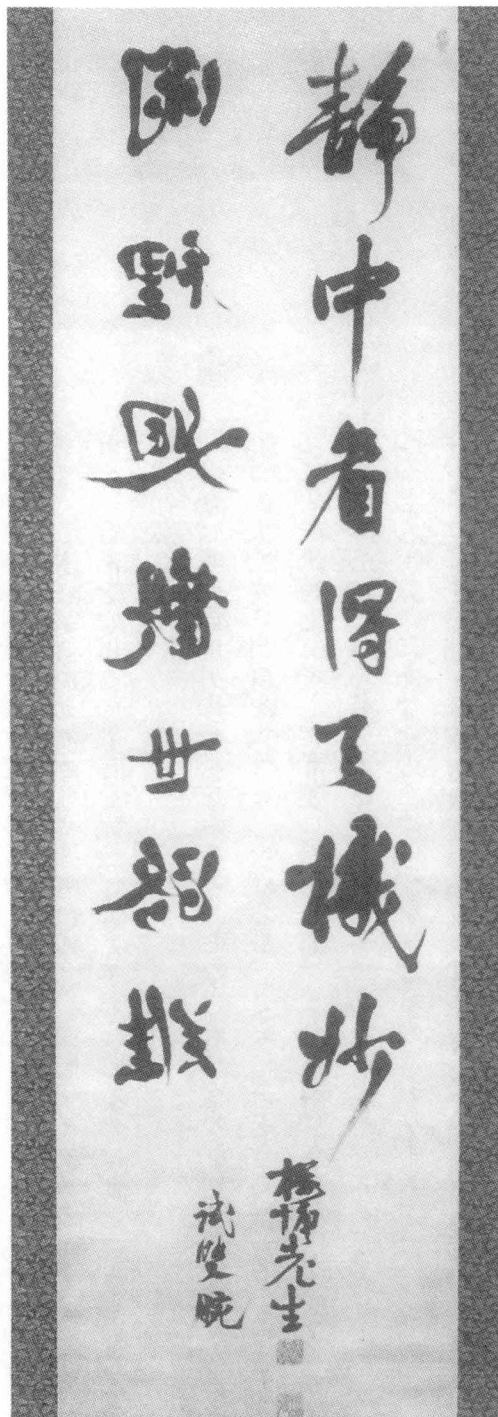 靜中看得天機妙
閑裡迴觀世路難
先生
試雙腕